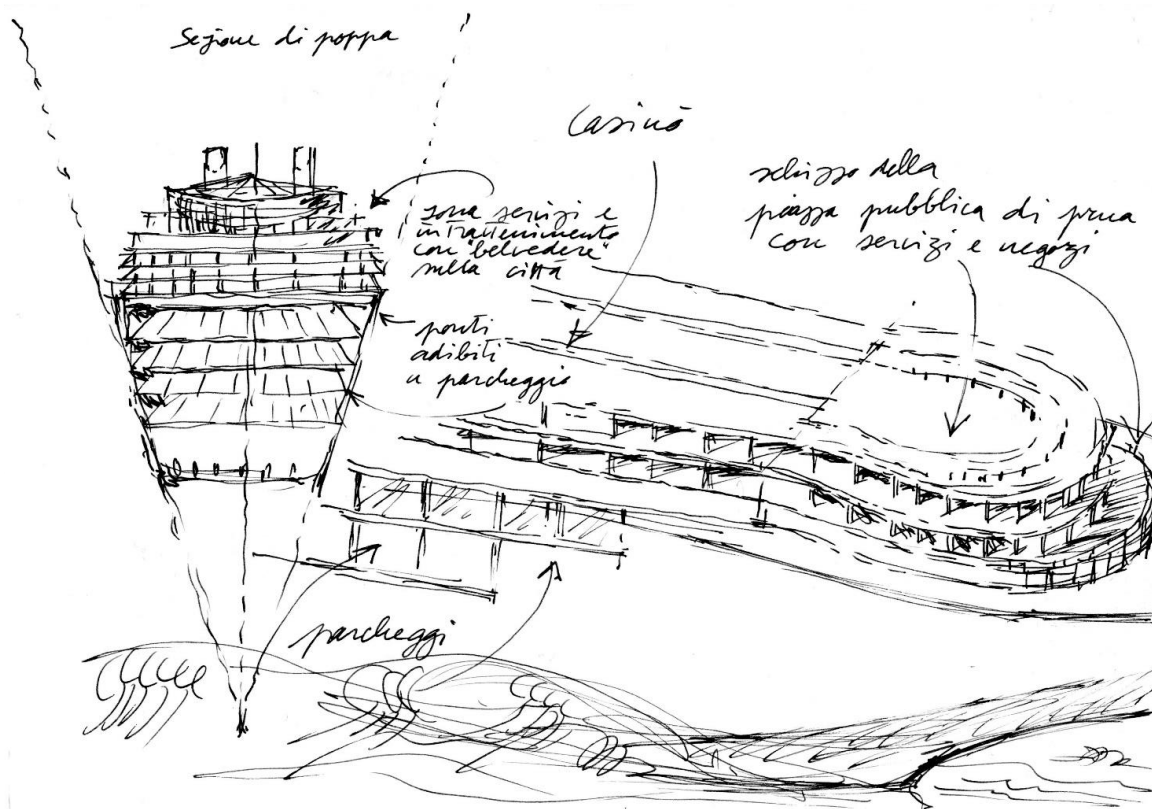 Sezione di poppa
Casinò
schizzo della
piazza pubblica di prua
con servizi e negozi
zona servizi e
intrattenimento
con "belvedere"
sulla città
ponti
adibiti
a parcheggio
parcheggi